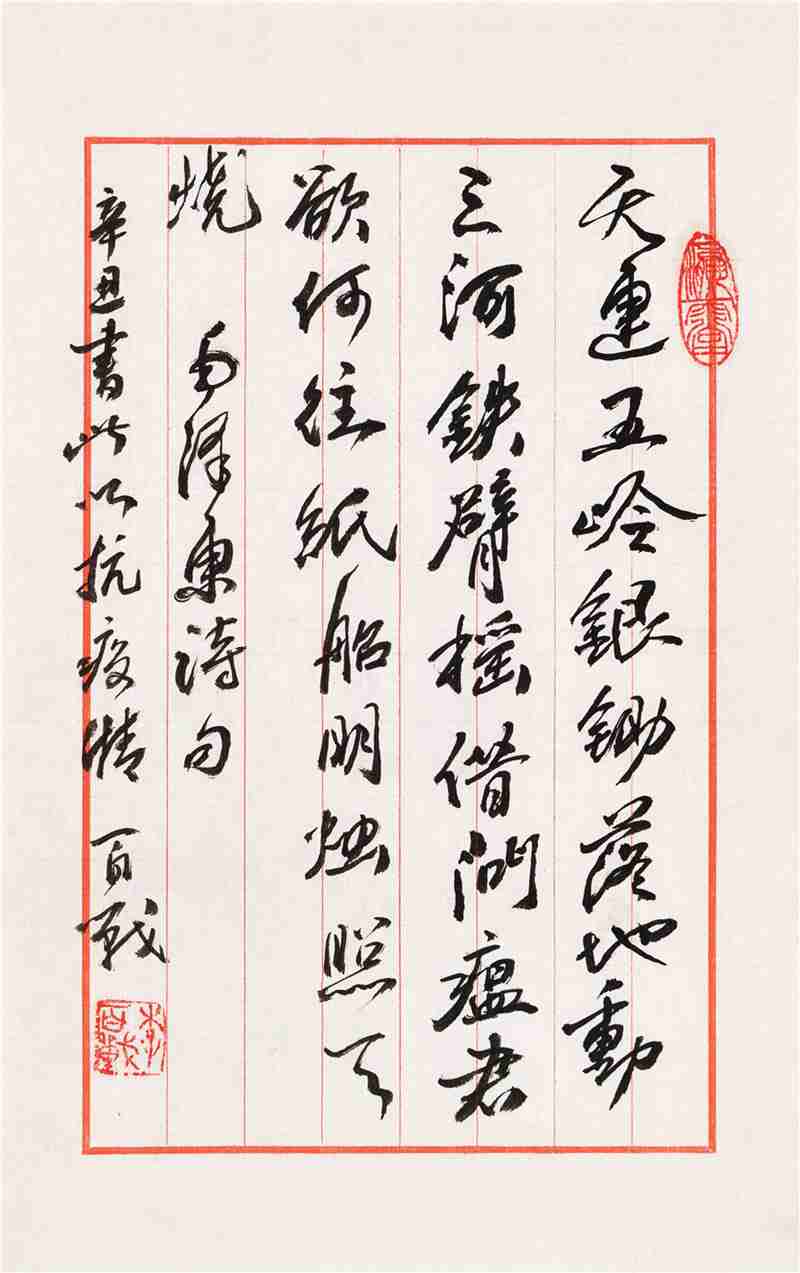 天連五岭銀鋤落地動
三河鉄臂摇借問瘟君
欲何往紙船明烛照天
烧 毛泽東詩句
辛丑書此以抗疫情 百戰